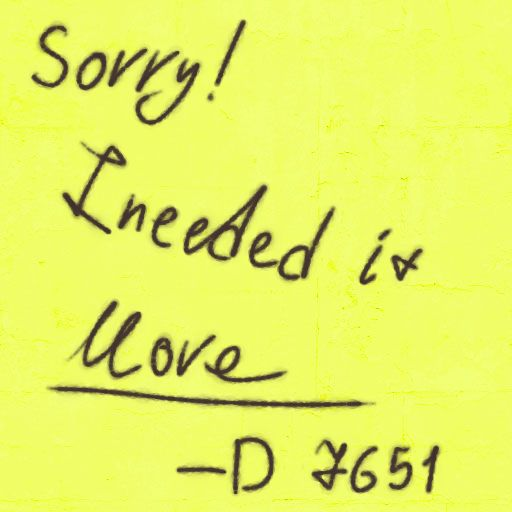 Sorry!
I needed it
More
-D 7651